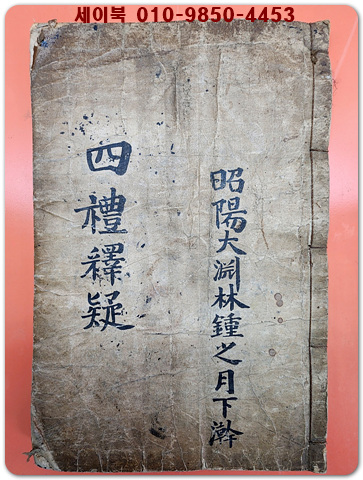 세이북 010-9850-4453
昭陽大淵林鍾之月下澣
四禮釋疑